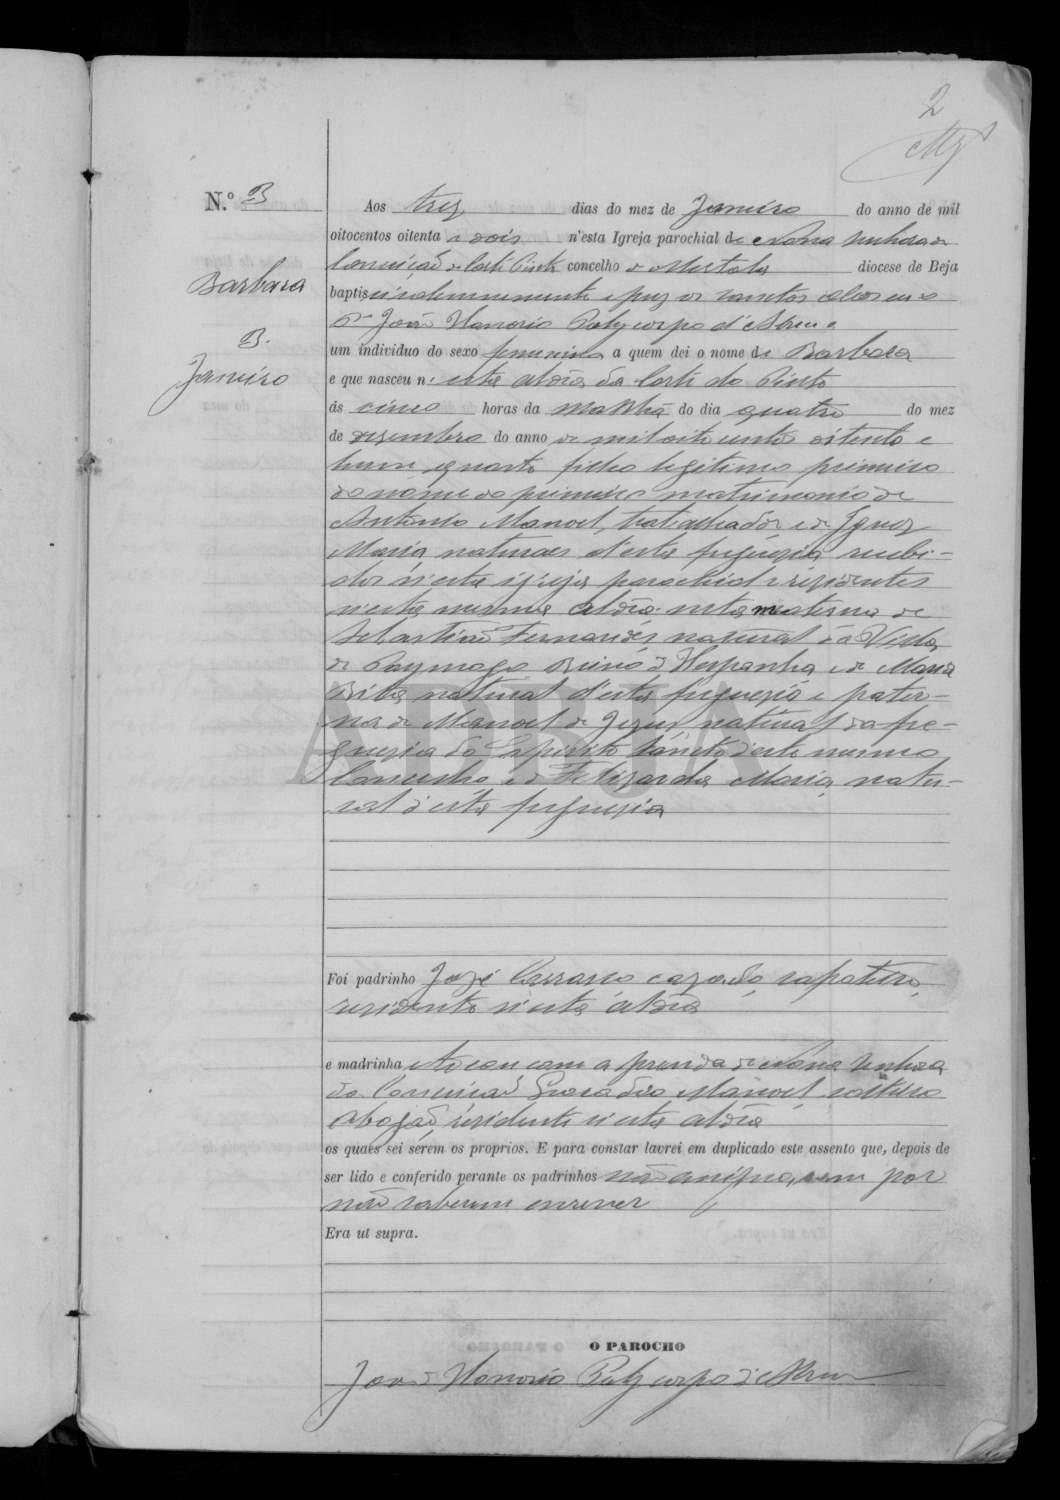 2
N.º 3
Barbara
3.
Janeiro
Aos trez dias do mez de Janeiro do anno de mil
oitocentos oitenta e dois n'esta Igreja parochial de Nossa Senhora da
Conceição da Corte Pinto concelho de Mertola diocese de Beja
baptisei solemnemente e puz os sanctos oleos eu o
P.e João Honorio Polycarpo d'Abreu a
um individuo do sexo feminino a quem dei o nome de Barbara
e que nasceu n'esta aldêa da Corte do Pinto
ás cinco horas da manhã do dia quatro do mez
de dezembro do anno de mil oito centos oitenta e
hum quarta filha legitima primeira
do nome do primeiro matrimonio de
Antonio Manoel, trabalhador e de Ignez
Maria naturaes d'esta freguezia recebi-
dos n'esta igreja parochial e rezidentes
n'esta mesma aldêa neta materna de
Sebastião Fernandes natural da Villa
de Paymogo Reino d'Hespanha e de Maria
Brita natural d'esta freguezia e pater-
na de Manoel de Jezus natural da fre-
guezia do Espirito Sancto d'este mesmo
Concelho e de Felizarda Maria natu-
ral d'esta freguezia
ADBJA
Foi padrinho Jozé Cazado sapateiro,
rezidente n'esta aldêa
e madrinha Tocou com a prenda de Nossa Senhora
da Conceição Manoel solteiro
rezidente n'esta aldêa
os quaes sei sérem os proprios. E para constar lavrei em duplicado este assento que, depois de
ser lido e conferido perante os padrinhos não assignaram por
não saberem escrever
Era ut supra.
O PAROCHO
João Honorio Polycarpo d'Abreu